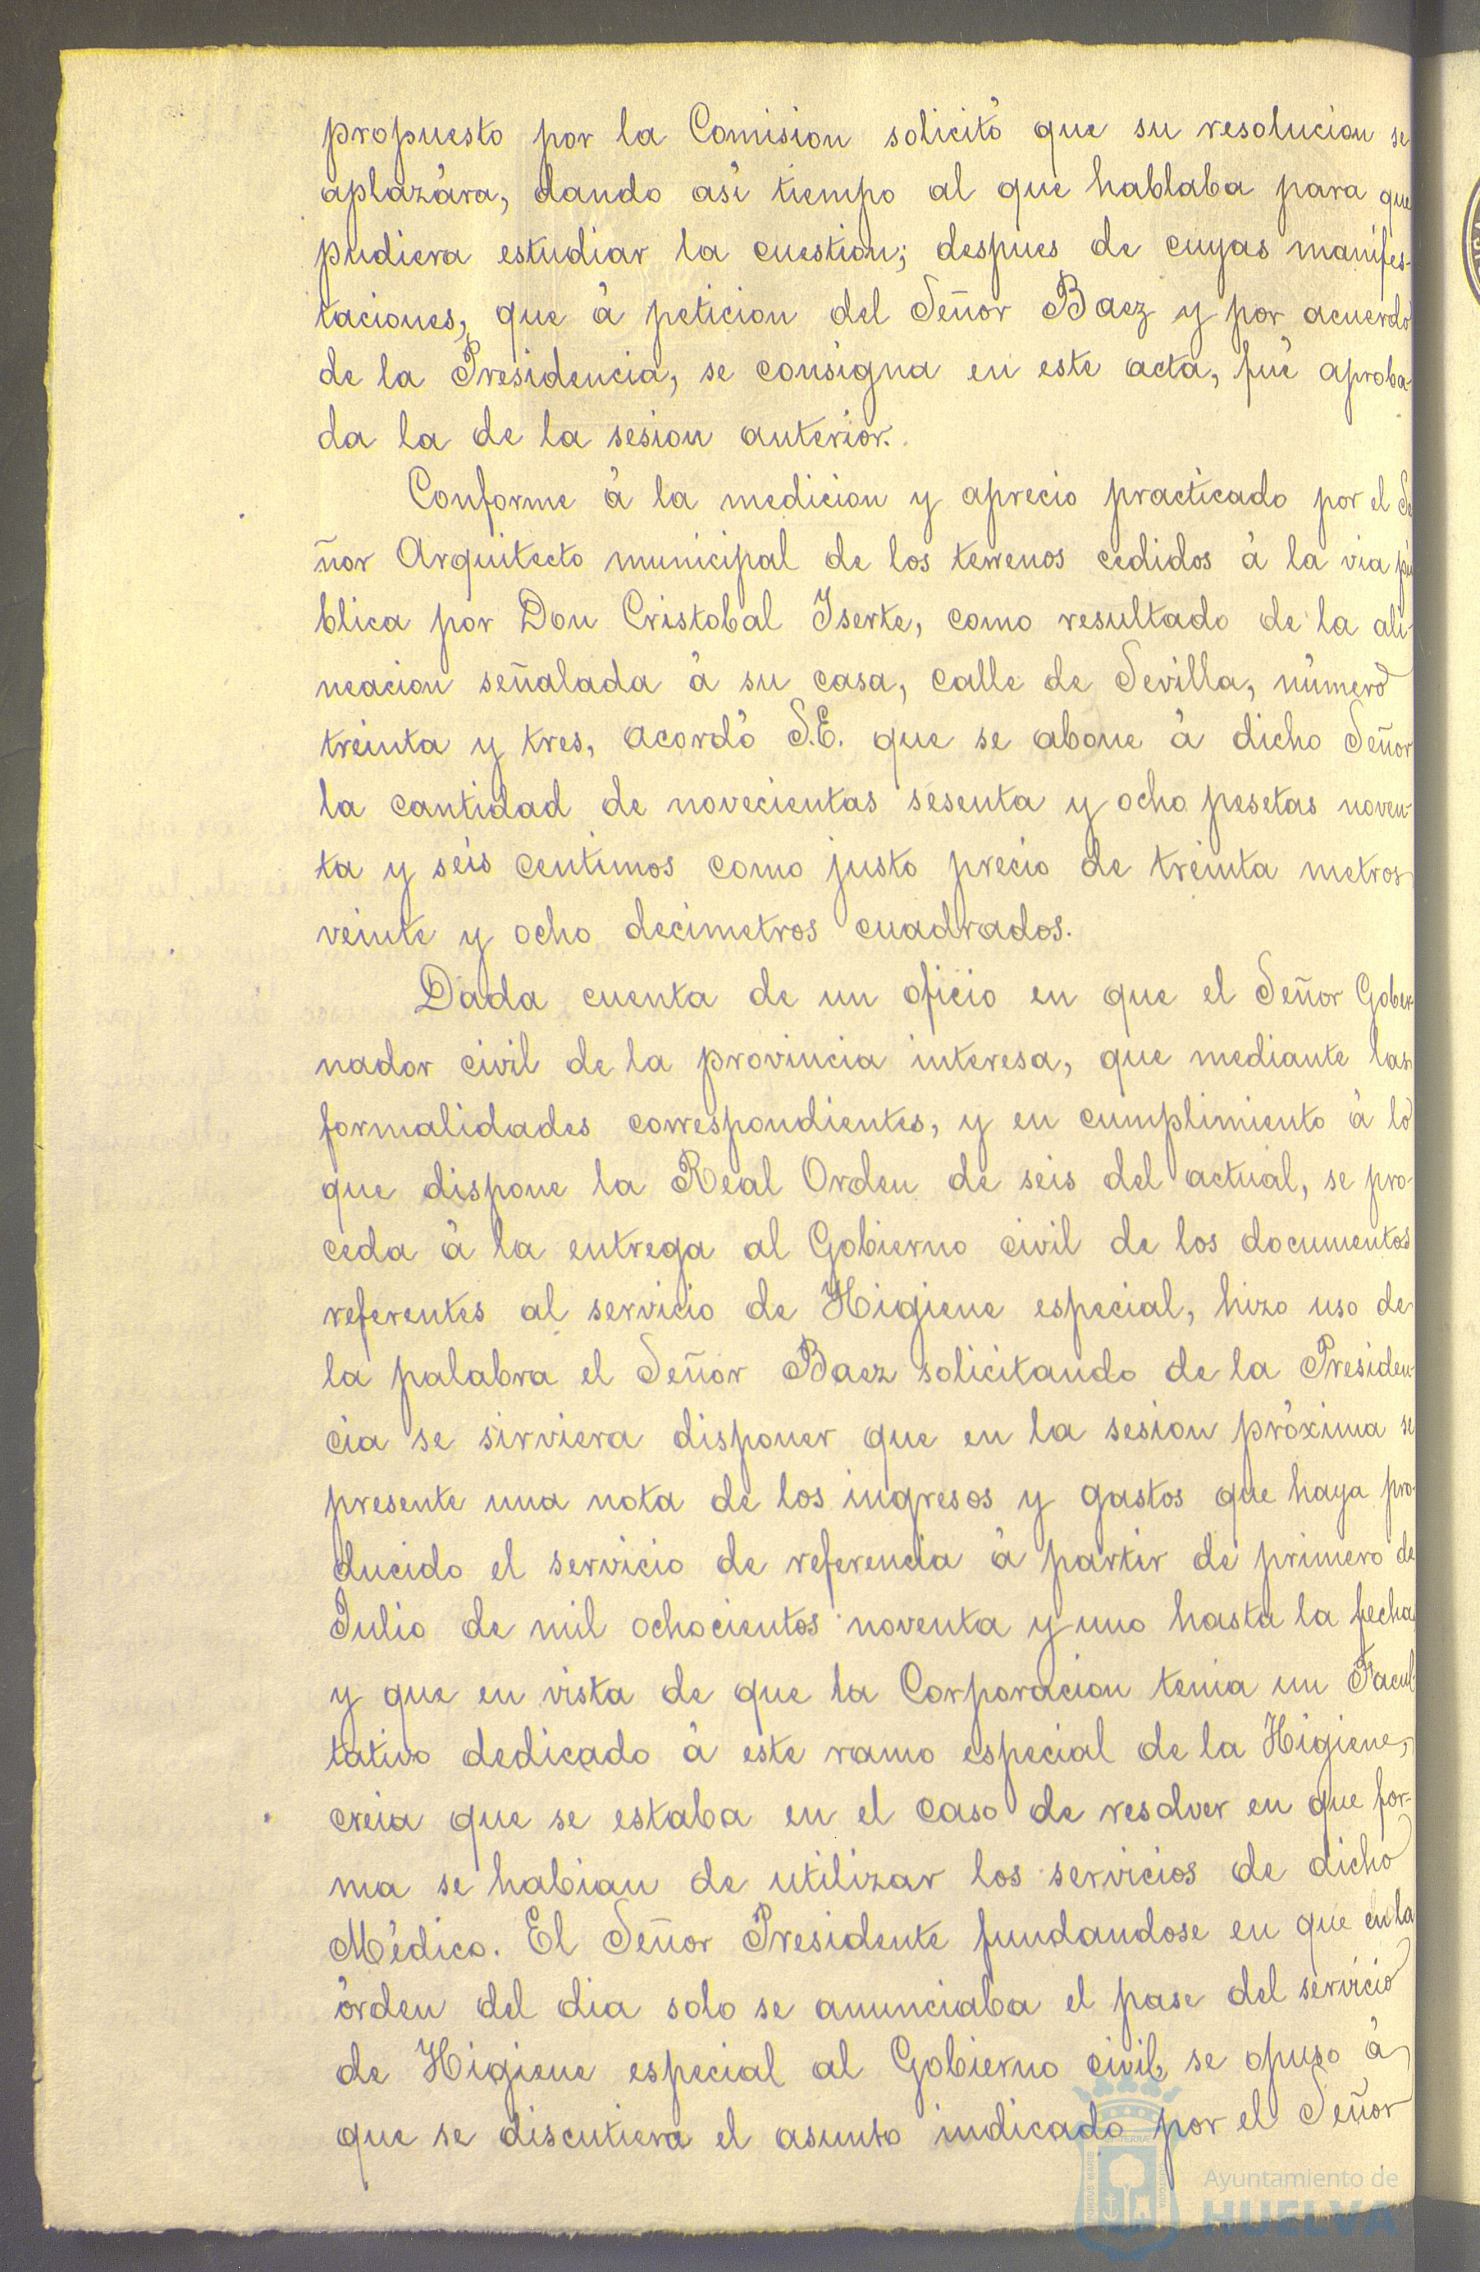 propuesto por la Comision solicitó que su resolucion se
aplazára, dando así tiempo al que hablaba para que
pudiera estudiar la cuestion; despues de cuyas manifes-
taciones, que á peticion del Señor Baez y por acuerdo
de la Presidencia, se consigna en este acta, fué aproba-
da la de la sesion anterior.
Conforme á la medicion y aprecio practicado por el Se
ñor Arquitecto municipal de los terrenos cedidos á la via pú
blica por Don Cristobal Iserte, como resultado de la ali-
neacion señalada á su casa, calle de Sevilla, número
treinta y tres, acordó S.E. que se abone á dicho Señor
la cantidad de novecientas sesenta y ocho pesetas noven-
ta y seis centimos como justo precio de treinta metros
veinte y ocho decimetros cuadrados.
Dada cuenta de un oficio en que el Señor Gober-
nador civil de la provincia interesa, que mediante las
formalidades correspondientes, y en cumplimiento á lo
que dispone la Real Orden de seis del actual, se pro-
ceda á la entrega al Gobierno civil de los documentos
referentes al servicio de Higiene especial, hizo uso de
la palabra el Señor Baez solicitando de la Presiden-
cia se sirviera disponer que en la sesion próxima se
presente una nota de los ingresos y gastos que haya pro-
ducido el servicio de referencia á partir de primero de
Julio de mil ochocientos noventa y uno hasta la fecha,
y que en vista de que la Corporacion tenia un Facul
tativo dedicado á este ramo especial de la Higiene,
creia que se estaba en el caso de resolver en que for-
ma se habian de utilizar los servicios de dicho
Médico. El Señor Presidente fundandose en que en la
órden del dia solo se anunciaba el pase del servicio
de Higiene especial al Gobierno civil, se opuso á
que se discutiera el asunto indicado por el Señor
Ayuntamiento de
HUELVA